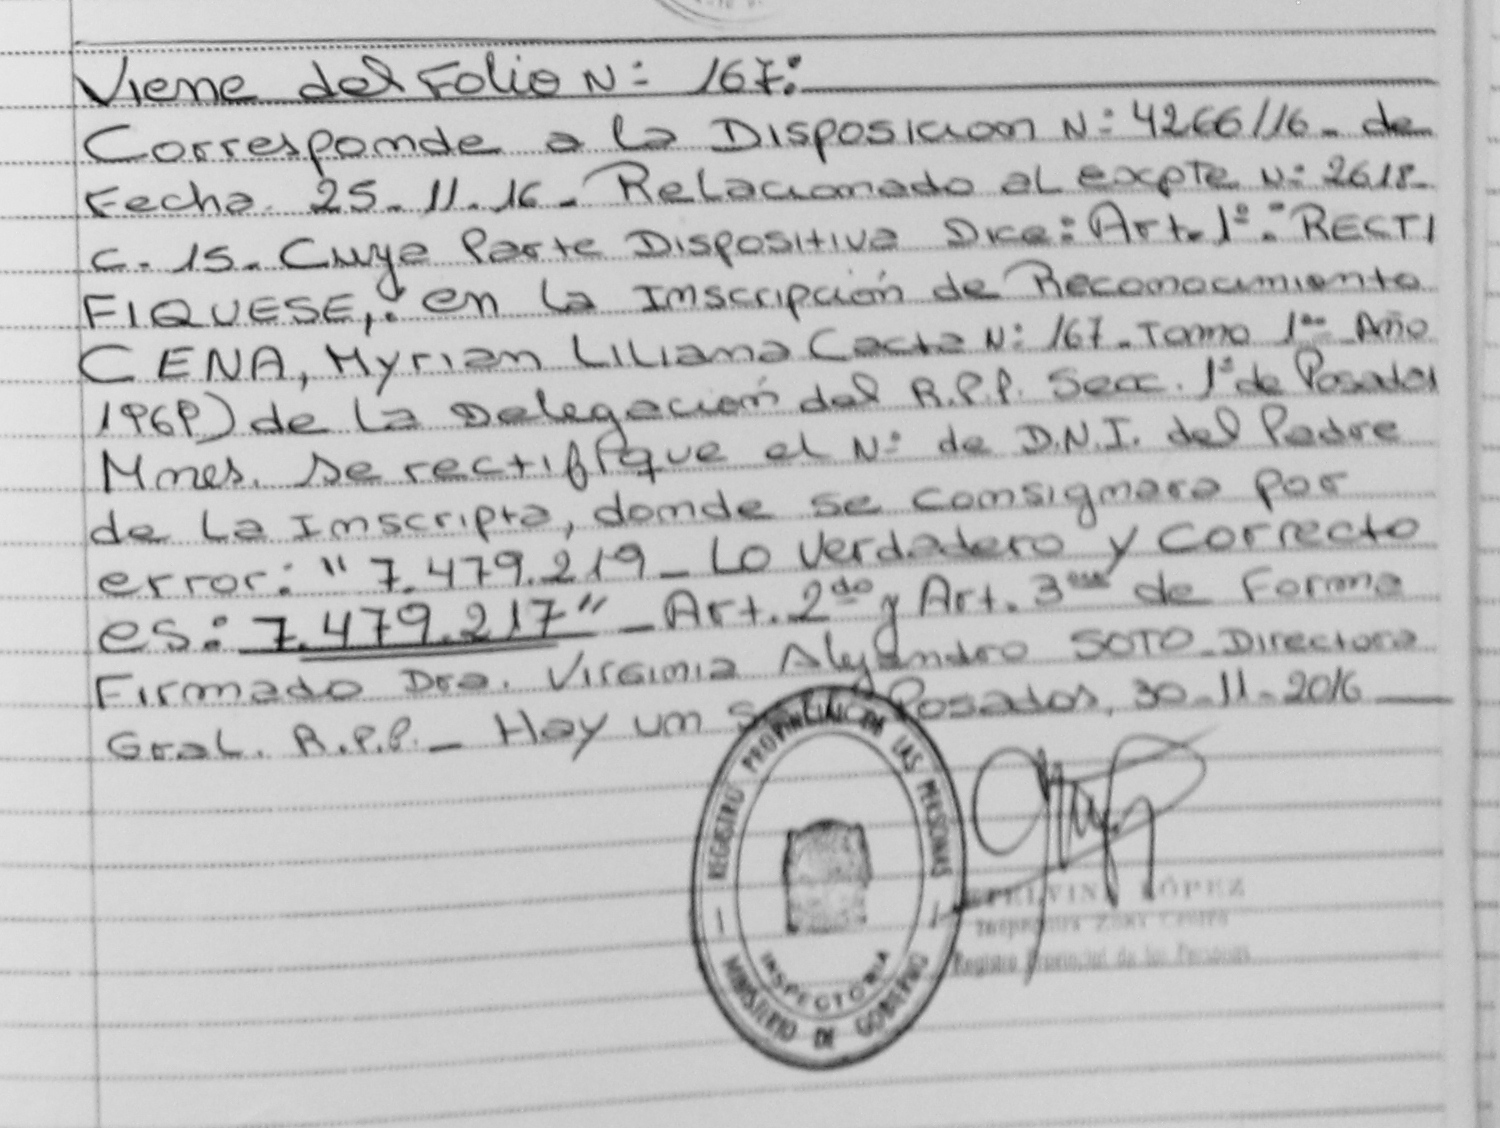 Viene del Folio N: 167:
Corresponde a la Disposicion N: 4266/16- de
Fecha. 25-11-16- Relacionado al expte N: 2618-
C-15- Cuya Parte Dispositiva Dice: Art. 1º: RECTI
FIQUESE,: en la Inscripción de Reconocimiento
CENA, Myrian Liliana Cacta N: 167-Tomo 1ro Año
1969) de la Delegación del R.P.P. Secc. 1ª de Posadas
Mnes. Se rectifique el Nº de D.N.I. del Padre
de la Inscripta, donde se consignara por
error: "7.479.219- Lo verdadero y correcto
es: 7.479.217"- Art. 2do y Art. 3ero de Forma
Firmado Dra. Virginia Alejandra SOTO-Directora
Gral. R.P.P.- Hay un Posadas, 30-11-2016
REGISTRO PROVINCIAL DE LAS PERSONAS
INSPECTORIA
MINISTERIO DE GOBIERNO
LÓPEZ
Zona Centro
Registro Provincial de las Personas